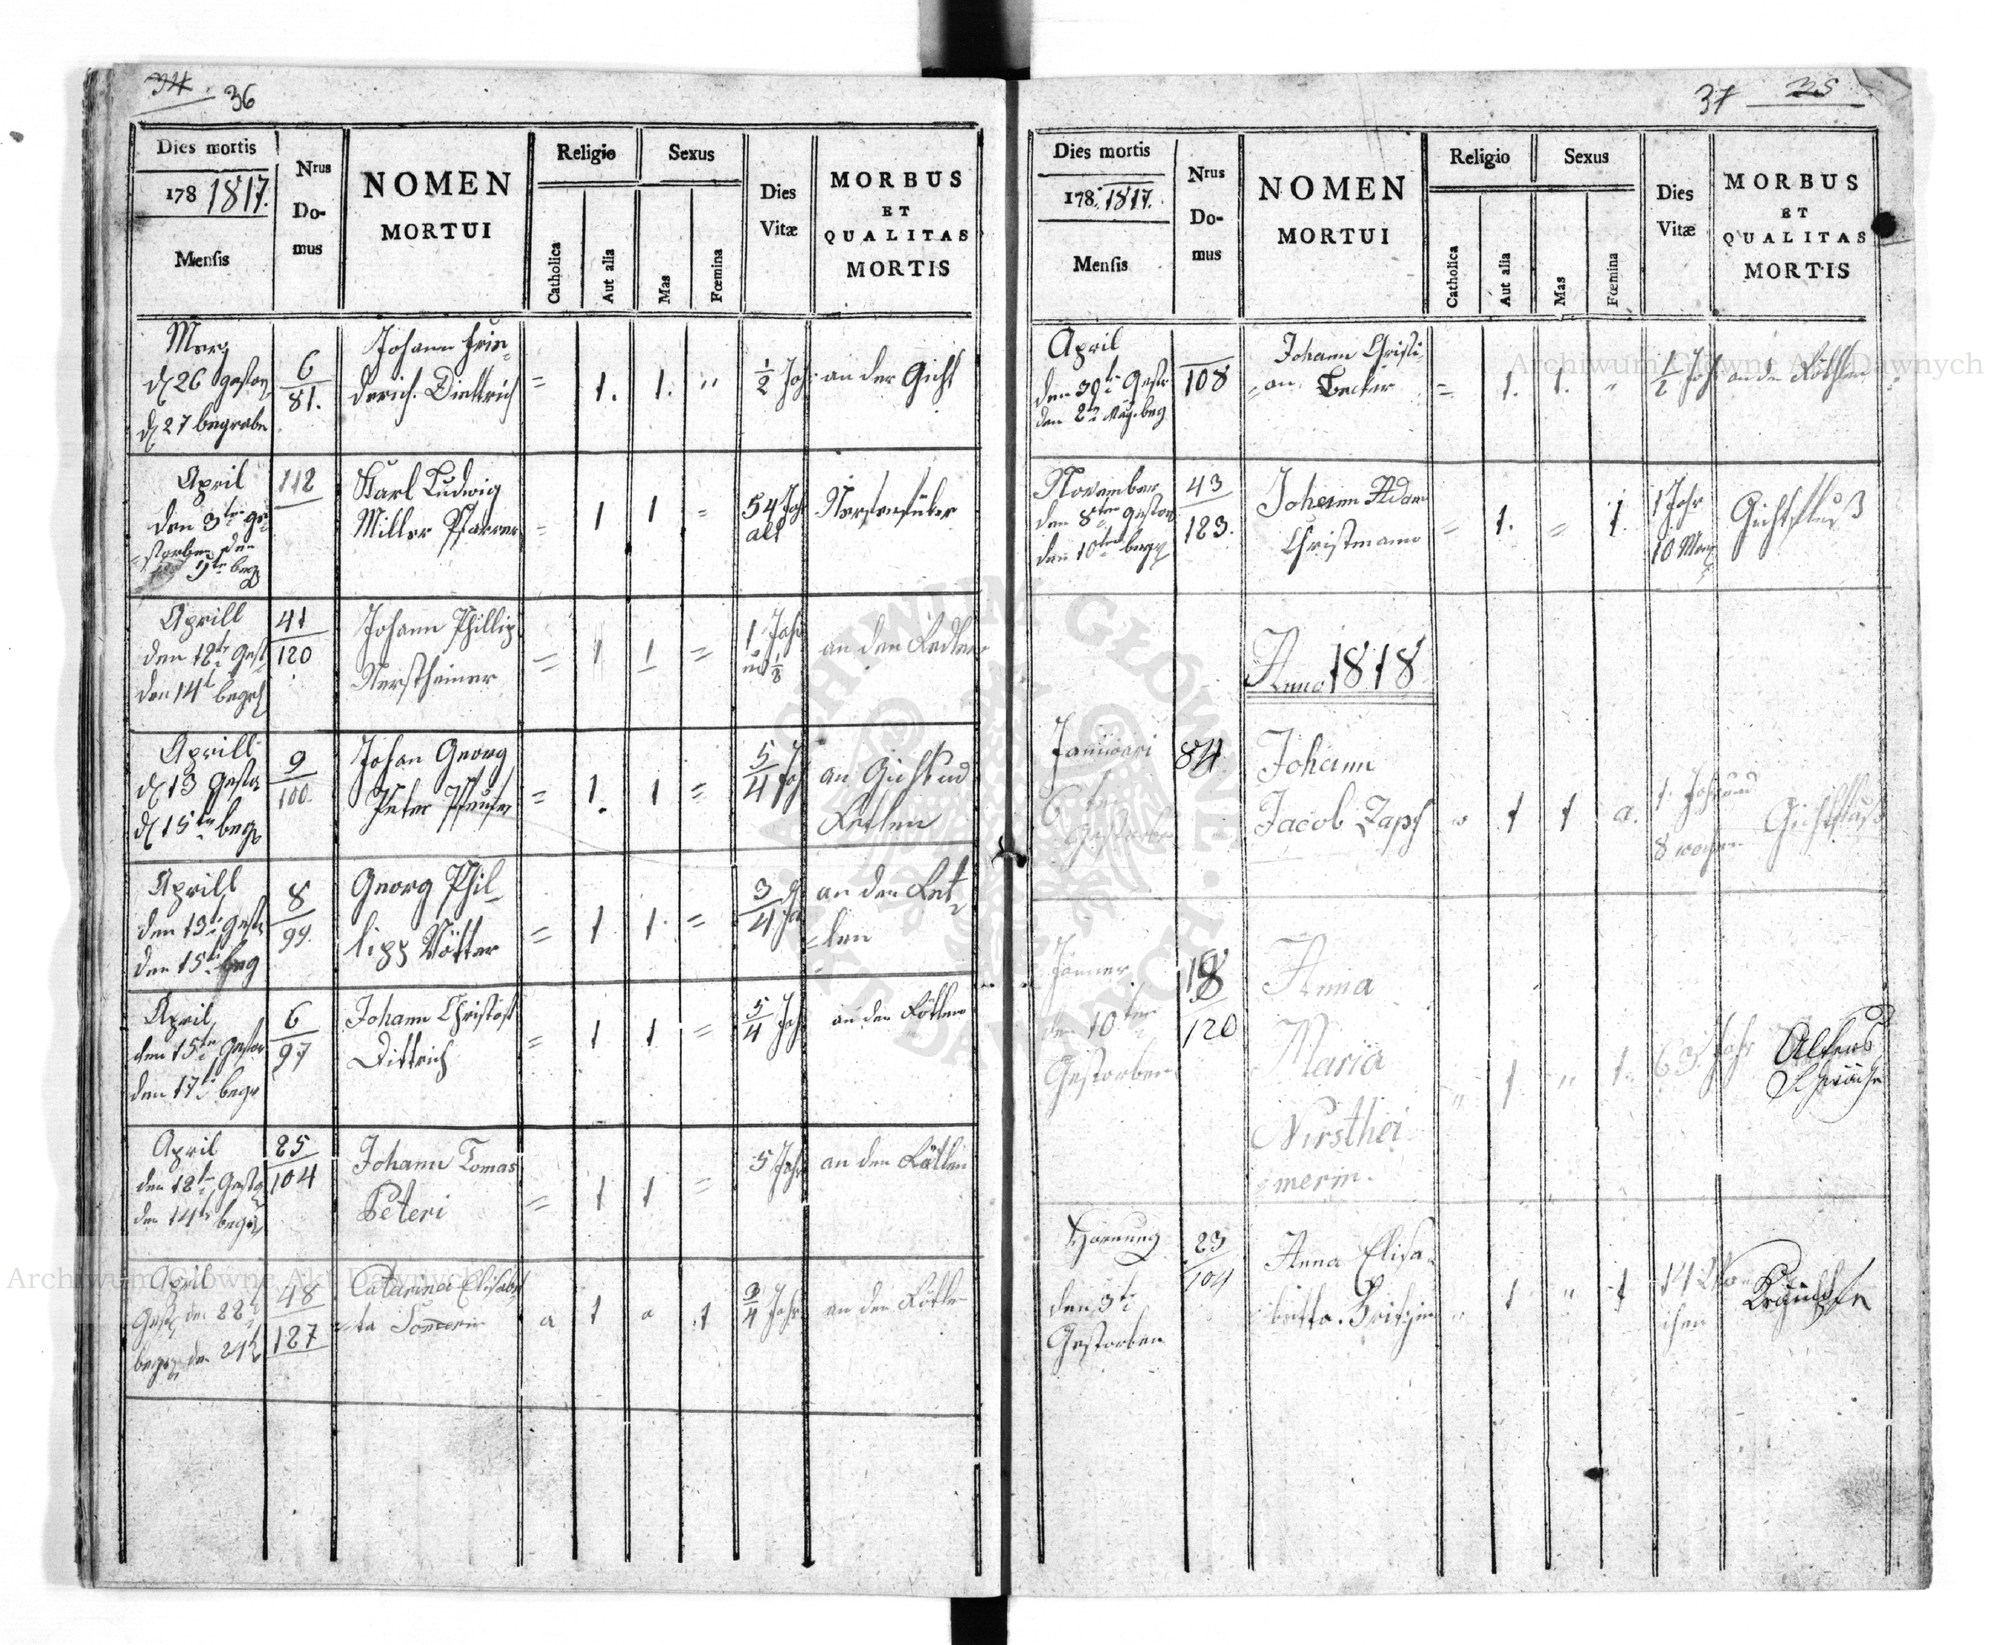 34 36
Dies mortis
178 1817.
Mensis
Nrus
Do-
mus
NOMEN
MORTUI
Religio
Catholica
Aut alia
Sexus
Mas
Fœmina
Dies
Vitæ
MORBUS
ET
QUALITAS
MORTIS
Merz
d 26 gestor
d 27 begrabe
6
81.
Johann Frie-
derich Diettrich
= 1. 1. "
1/2 Jahr
an der Gicht
April
den 3ten ge-
=storben den
5te beg
112
Karl Ludwig
Miller Pfarrer
= 1 1 =
54 Jahr
alt
Nerfenfüber
Aprill
den 12te Gest
den 14t begr
41
120
Johann Phillip
Nerstheimer
= 1 1 =
1 Jahr
und 1/8
an den Redlen
Aprill
d 13 Gestor
d 15ten beg
9
100.
Johan Georg
Peter
= 1. 1 =
5/4 Jah
an Gicht ud
Retlen
Aprill
den 13te Gest
den 15te beg
8
99.
Georg Phil-
lipp Vötter
= 1 1. =
3/4 Ja
an den Ret-
=len
April
den 15ten Gestor
den 17te begr
6
97
Johann Christof
Dittrich
= 1 1 =
5/4 Jahr
an den Rötlen
April
den 12ten Gestor
den 14te begr
25
104
Johann Tomas
Peteri
= 1 1 =
5 Jahr
an den Rötlen
April
Gest den 22t
begr den 24t
48
127
Catarina Elisabe
=ta
a 1 a 1
3/4 Jahr
an den Rötle
37 35
Dies mortis
178 1817.
Mensis
Nrus
Do-
mus
NOMEN
MORTUI
Religio
Catholica
Aut alia
Sexus
Mas
Fœmina
Dies
Vitæ
MORBUS
ET
QUALITAS
MORTIS
April
den 30te Gestr
den 2te May beg
108
Johann Christi-
=an Becker
= 1. 1. "
1/2 Jah
an den Röthlen
November
den 8ten gestor
den 10ten begr
43
123.
Johann Adam
Christmann
= 1. = 1.
1 Jahr
10 Mon
Gichtfluß
Anno 1818
Januari
6ten
Gestorbe
84
Johann
Jacob Zapf
" 1 1 a.
1. Jahr und
8 wochen
Gichtfluß
Jänner
den 10ten
Gestorben
18
120
Anna
Maria
Nirsthei-
merin.
" 1 " 1.
63 Jahr
Alters
Schwäche
Hornung
den 3te
Gestorben
23
104
Anna Elisa-
betta
" 1 " 1
14 Wo-
chen
Krämpfe
Archiwum Główne Akt Dawnych
Archiwum Główne Akt Dawnych
ARCHIWUM GŁÓWNE AKT DAWNYCH